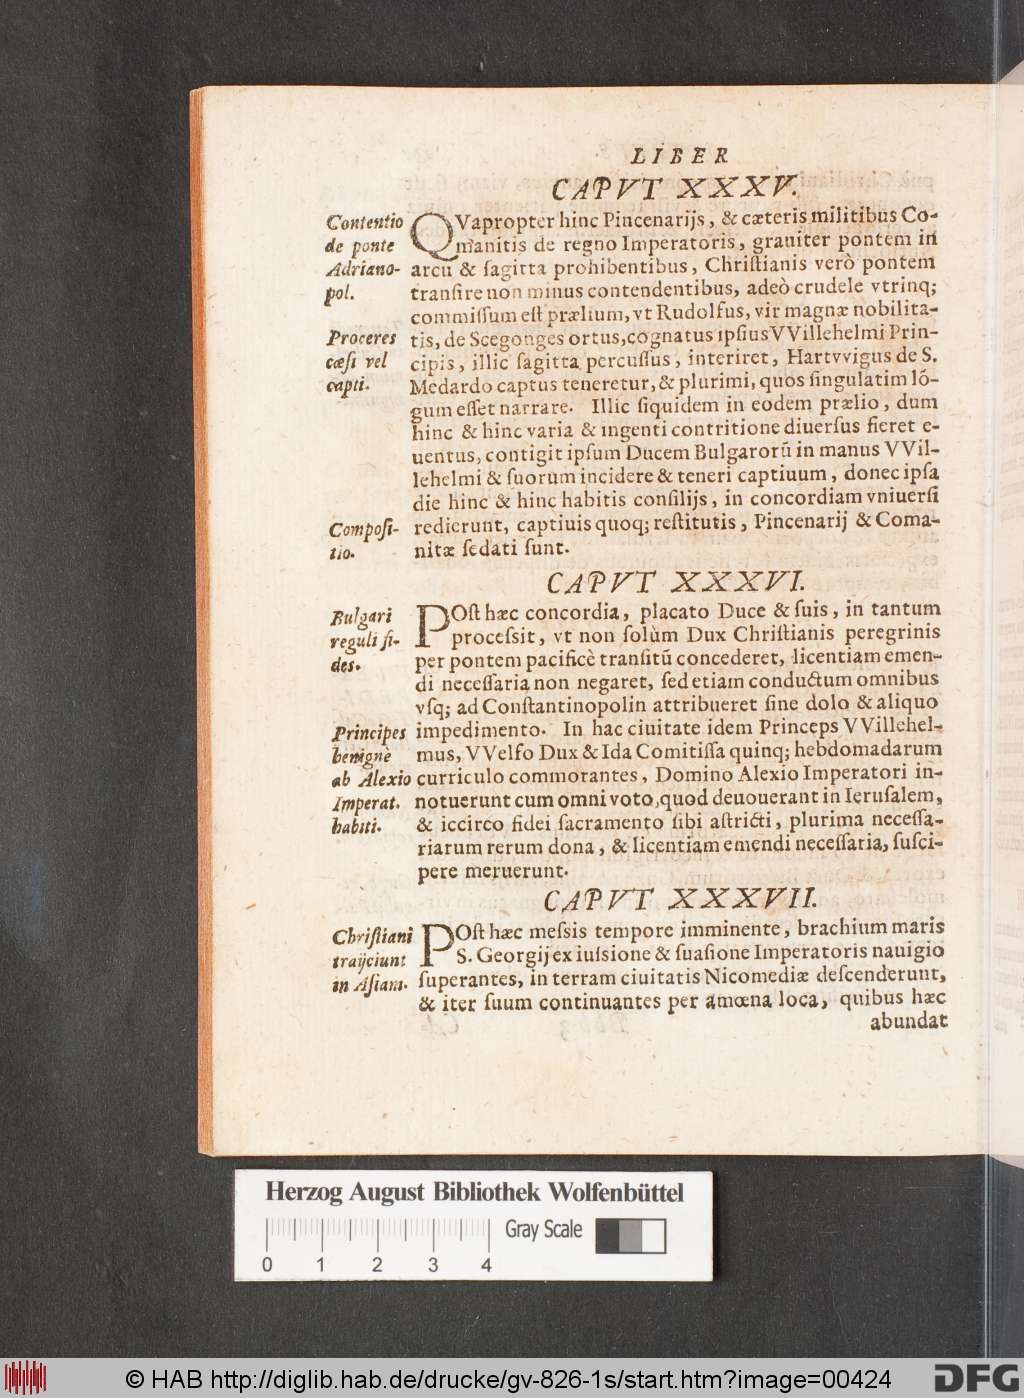 LIBER
CAPVT XXXV.
Contentio
de ponte
Adriano-
pol.
QVapropter hinc Pincenarijs, & cæteris militibus Co-
manitis de regno Imperatoris, grauiter pontem in
arcu & ſagitta prohibentibus, Chriſtianis verò pontem
tranſire non minus contendentibus, adeò crudele vtrinq;
commiſſum eſt prælium, vt Rudolfus, vir magnæ nobilita-
Proceres
cæſi vel
capti.
tis, de Scegonges ortus, cognatus ipſius VVillehelmi Prin-
cipis, illic ſagitta percuſſus, interiret, Hartvvigus de S.
Medardo captus teneretur, & plurimi, quos ſingulatim lō-
gum eſſet narrare. Illic ſiquidem in eodem prælio, dum
hinc & hinc varia & ingenti contritione diuerſus fieret e-
uentus, contigit ipſum Ducem Bulgarorū in manus VVil-
lehelmi & ſuorum incidere & teneri captiuum, donec ipſa
die hinc & hinc habitis conſilijs, in concordiam vniuerſi
Compoſi-
tio.
redierunt, captiuis quoq; reſtitutis, Pincenarij & Coma-
nitæ ſedati ſunt.
CAPVT XXXVI.
Bulgari
reguli fi-
des.
POſt hæc concordia, placato Duce & ſuis, in tantum
proceſsit, vt non ſolùm Dux Chriſtianis peregrinis
per pontem pacificè tranſitū concederet, licentiam emen-
di neceſſaria non negaret, ſed etiam conductum omnibus
vſq; ad Conſtantinopolin attribueret ſine dolo & aliquo
Principes
benignè
ab Alexio
Imperat.
habiti.
impedimento. In hac ciuitate idem Princeps VVillehel-
mus, VVelfo Dux & Ida Comitiſſa quinq; hebdomadarum
curriculo commorantes, Domino Alexio Imperatori in-
notuerunt cum omni voto, quod deuouerant in Ieruſalem,
& iccirco fidei ſacramento ſibi aſtricti, plurima neceſſa-
riarum rerum dona, & licentiam emendi neceſſaria, ſuſci-
pere meruerunt.
CAPVT XXXVII.
Chriſtiani
traijciunt
in Aſiam.
POſt hæc meſsis tempore imminente, brachium maris
S. Georgij ex iuſsione & ſuaſione Imperatoris nauigio
ſuperantes, in terram ciuitatis Nicomediæ deſcenderunt,
& iter ſuum continuantes per amœna loca, quibus hæc
abundat
Herzog August Bibliothek Wolfenbüttel
Gray Scale
0 1 2 3 4
© HAB http://diglib.hab.de/drucke/gv-826-1s/start.htm?image=00424
DFG